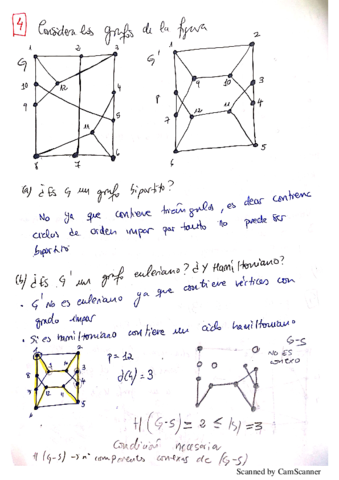 4 Considera los grafos de la figura
G
G'
1 2 3
1 2
10
12
9
4
5
11
8 7 6
9 10
3
8
4
7
12 11
6 5
(a) ¿Es G un grafo bipartito?
No ya que contiene triángulos, es decir contiene
ciclos de orden impar por tanto no puede ser
bipartito
(b) ¿Es G' un grafo euleriano? ¿Y Hamiltoniano?
• G' no es euleriano ya que contiene vértices con
grado impar
• Si es hamiltoniano contiene un ciclo hamiltoniano
G-S
NO ES
p=12
d(G)=3
H(G-S) = 2 ≤ |S| = 3
Condición necesaria
H(G-S) → nº componentes conexas de (G-S)
Scanned by CamScanner